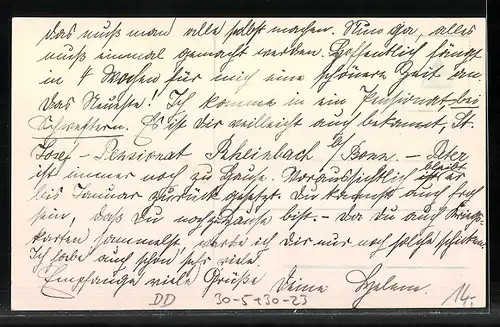 das muß man alle selbst machen. Nun ja, alles
muß einmal gemacht werden. Hoffentlich fängt
in 4 Wochen für mich eine schönere Zeit an.
Das Neueste! Ich komme in ein Pensionat bei
Schwestern. Es ist dir vielleicht auch bekannt, St.
Josef-Pensionat Rheinbach b/Bonn. - Peter
ist immer noch zu Hause. Voraussichtlich bleibt er
bis Januar zurück gesetzt. Du kannst auch froh
sein, daß Du noch zuhause bist. - Da Du auch Kriegs-
karten sammelst, werde ich Dir nur noch solche schicken.
Ich habe auch schon sehr viele.
Empfange viele Grüße Deine Helene.
DD 30-5+30-23
14,-